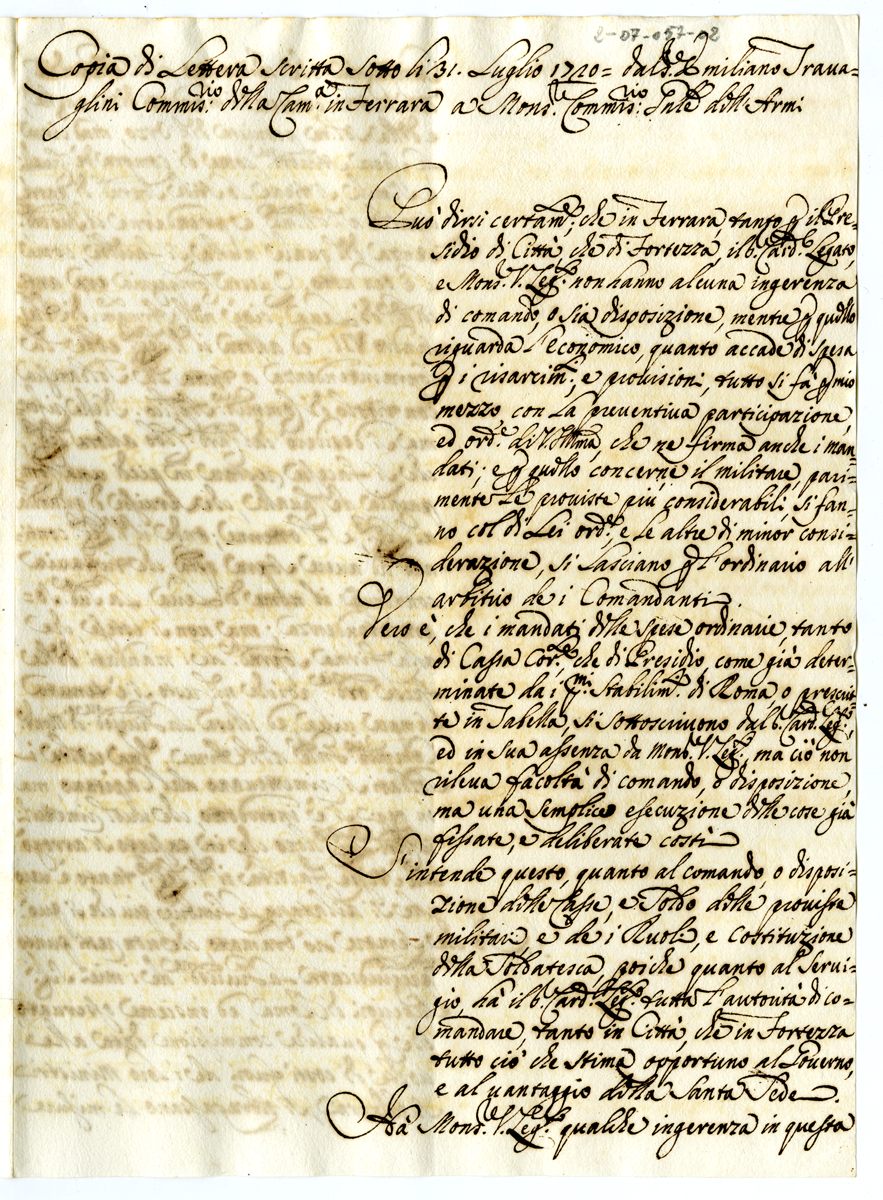 2-07-057-02
Copia di Lettera scritta sotto li 31. Luglio 1720= dal S.r Emiliano Trava=
glini Commis:rio della Cam.a in Ferrara a Mons.re Commis:rio Gnle delle Armi
Può dirsi certam.te, che in Ferrara, tanto p il Pre=
sidio di Città, che di Fortezza, il S. Card.l Legato,
e Mons.r V. Leg.to non hanno alcuna ingerenza
di comando, o sia disposizione, mentre p quello
riguarda l'economico, quanto accade di spesa
p i risarcim.ti, e provisioni, tutto si fà p mio
mezzo con la preventiva participazione,
ed ord.e di V.S. Illma, che ne firma anche i man=
dati; e p quello concerne il militare, pari=
mente le proviste più considerabili, si fan=
no col di Lei ord.e, e le altre di minor consi=
derazione, si lasciano p l'ordinario all'
arbitrio de i Comandanti.
Vero è, che i mandati delle spese ordinarie, tanto
di Cassa Cor.te, che di Presidio, come già deter=
minate da i pmi Stabilim.ti di Roma, o prescrit=
te in Tabella, si sottoscrivono dal S. Card. Leg.to,
ed in sua assenza da Mons.r V. Leg.to, ma ciò non
rileva facoltà di comando, o disposizione,
ma una semplice esecuzione delle cose già
fissate, e deliberate costì
S'intende questo, quanto al comando, o disposi=
zione delle Casse, e Soldo delle proviste
militari, e de i Ruoli, e Costituzione
della Soldatesca, poiche quanto al Servi=
gio, hà il S. Card. Leg.to tutta l'autorità di co=
mandare, tanto in Città, che in Fortezza
tutto ciò che stima opportuno al Governo,
e al vantaggio della Santa Sede.
Hà Mons.r V. Leg.to qualche ingerenza in questa